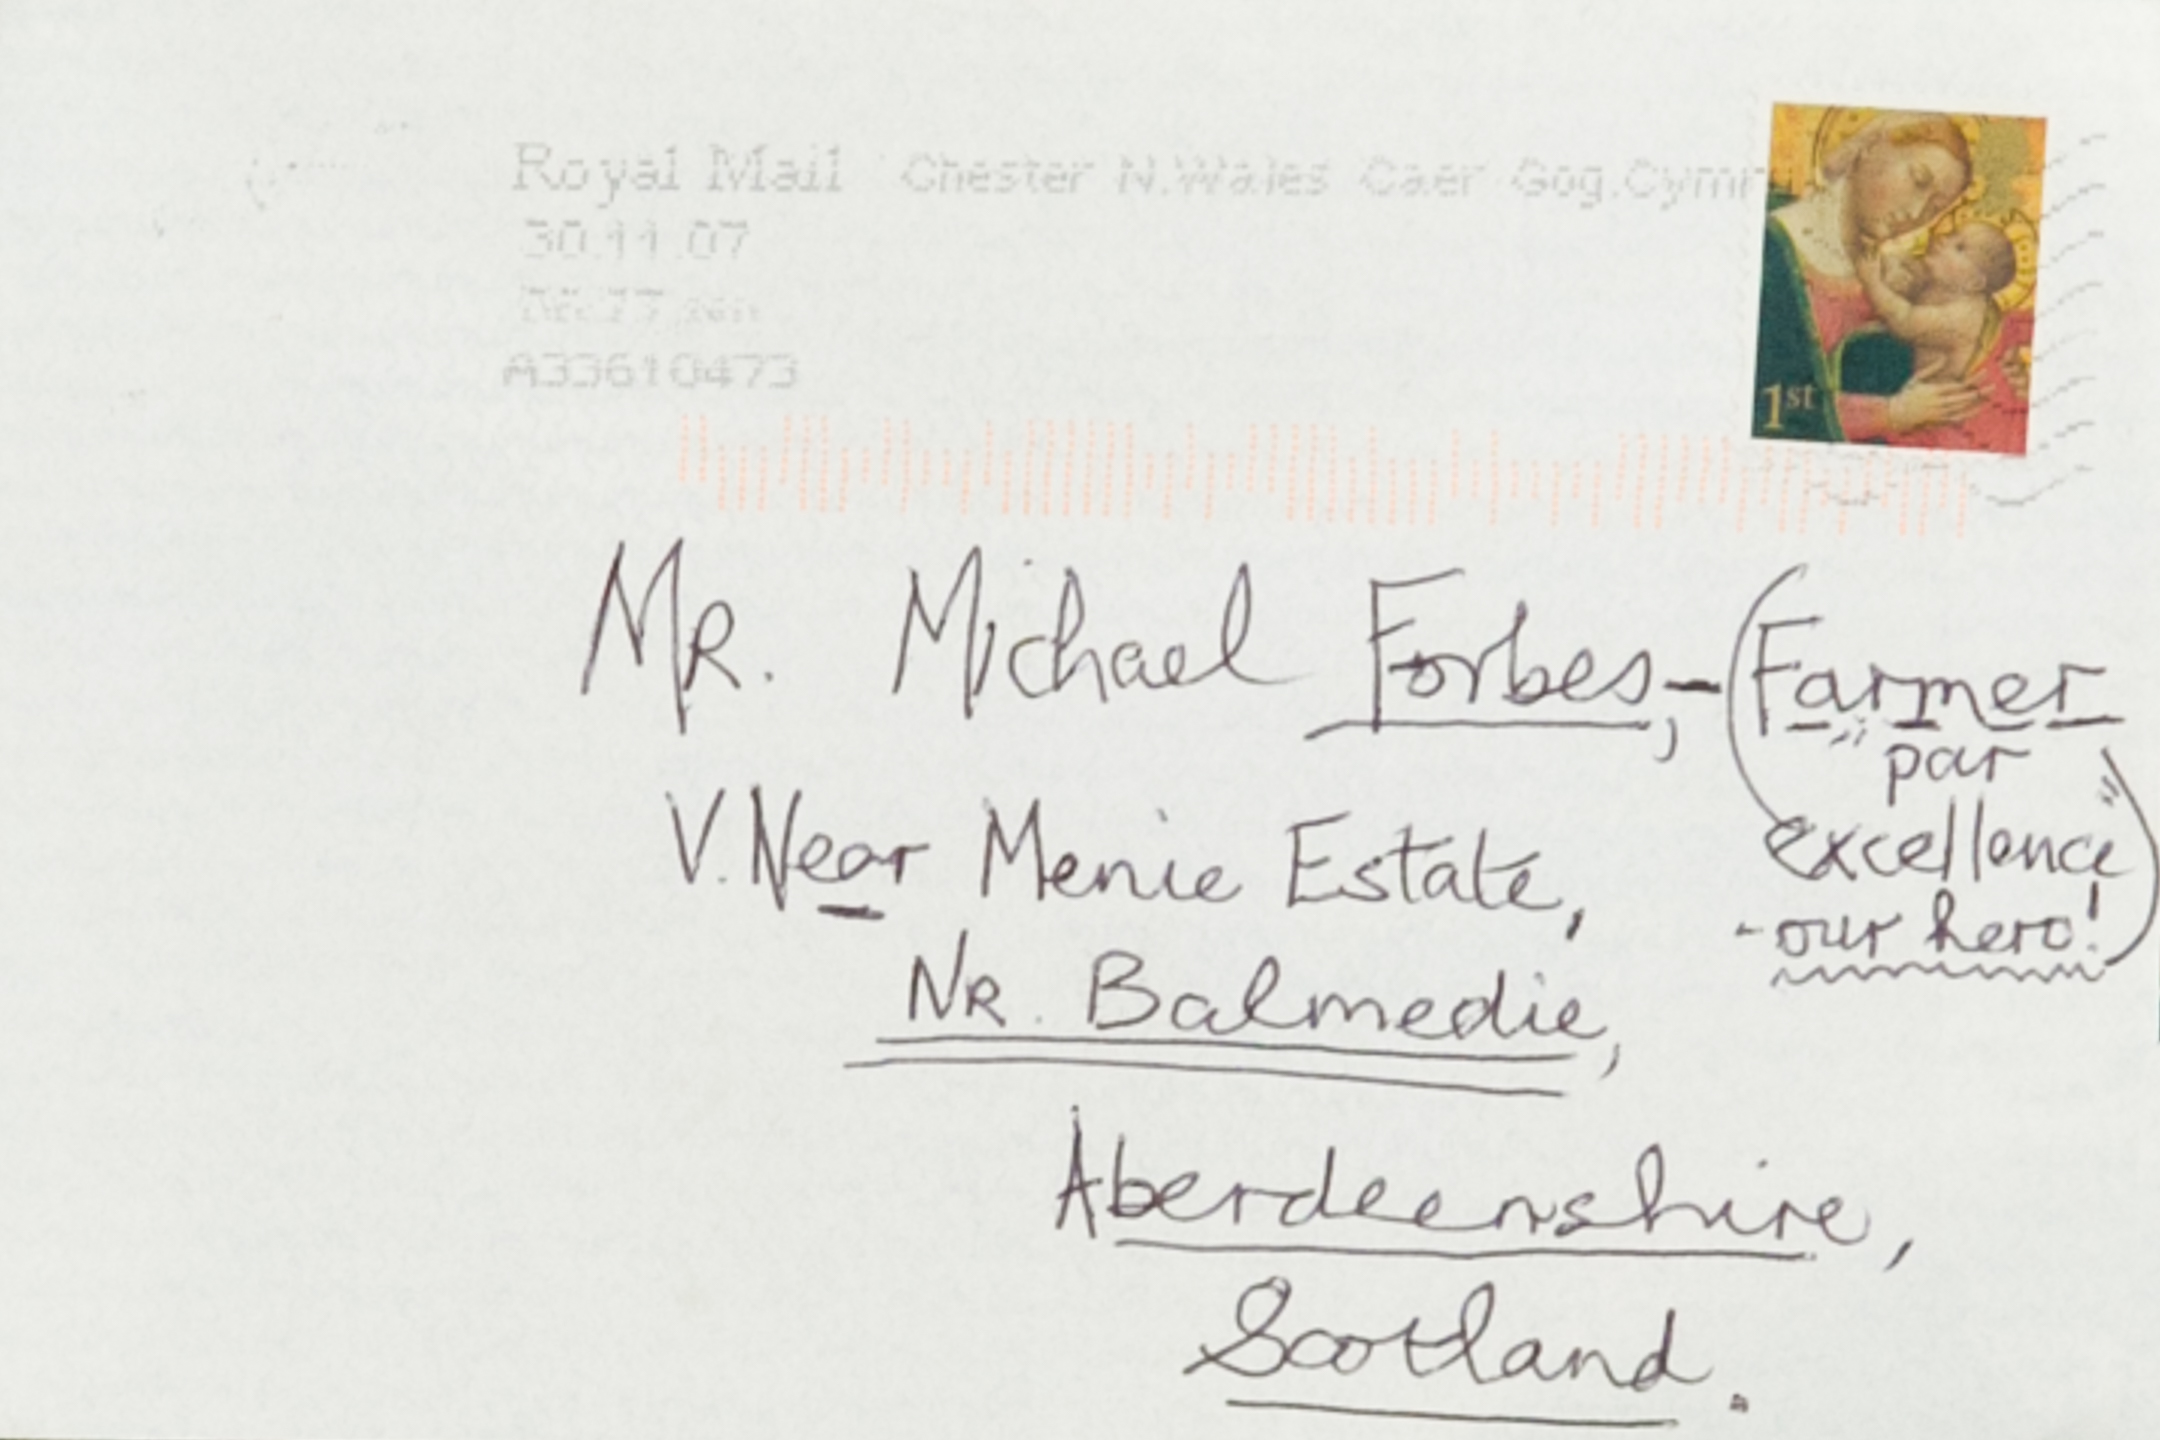 Royal Mail Chester N.Wales Caer Gog.Cymr
30.11.07
A33610473
1st
MR. Michael Forbes,- (Farmer
"par
excellence"
- our hero!)
V. Near Menie Estate,
NR. Balmedie,
Aberdeenshire,
Scotland.